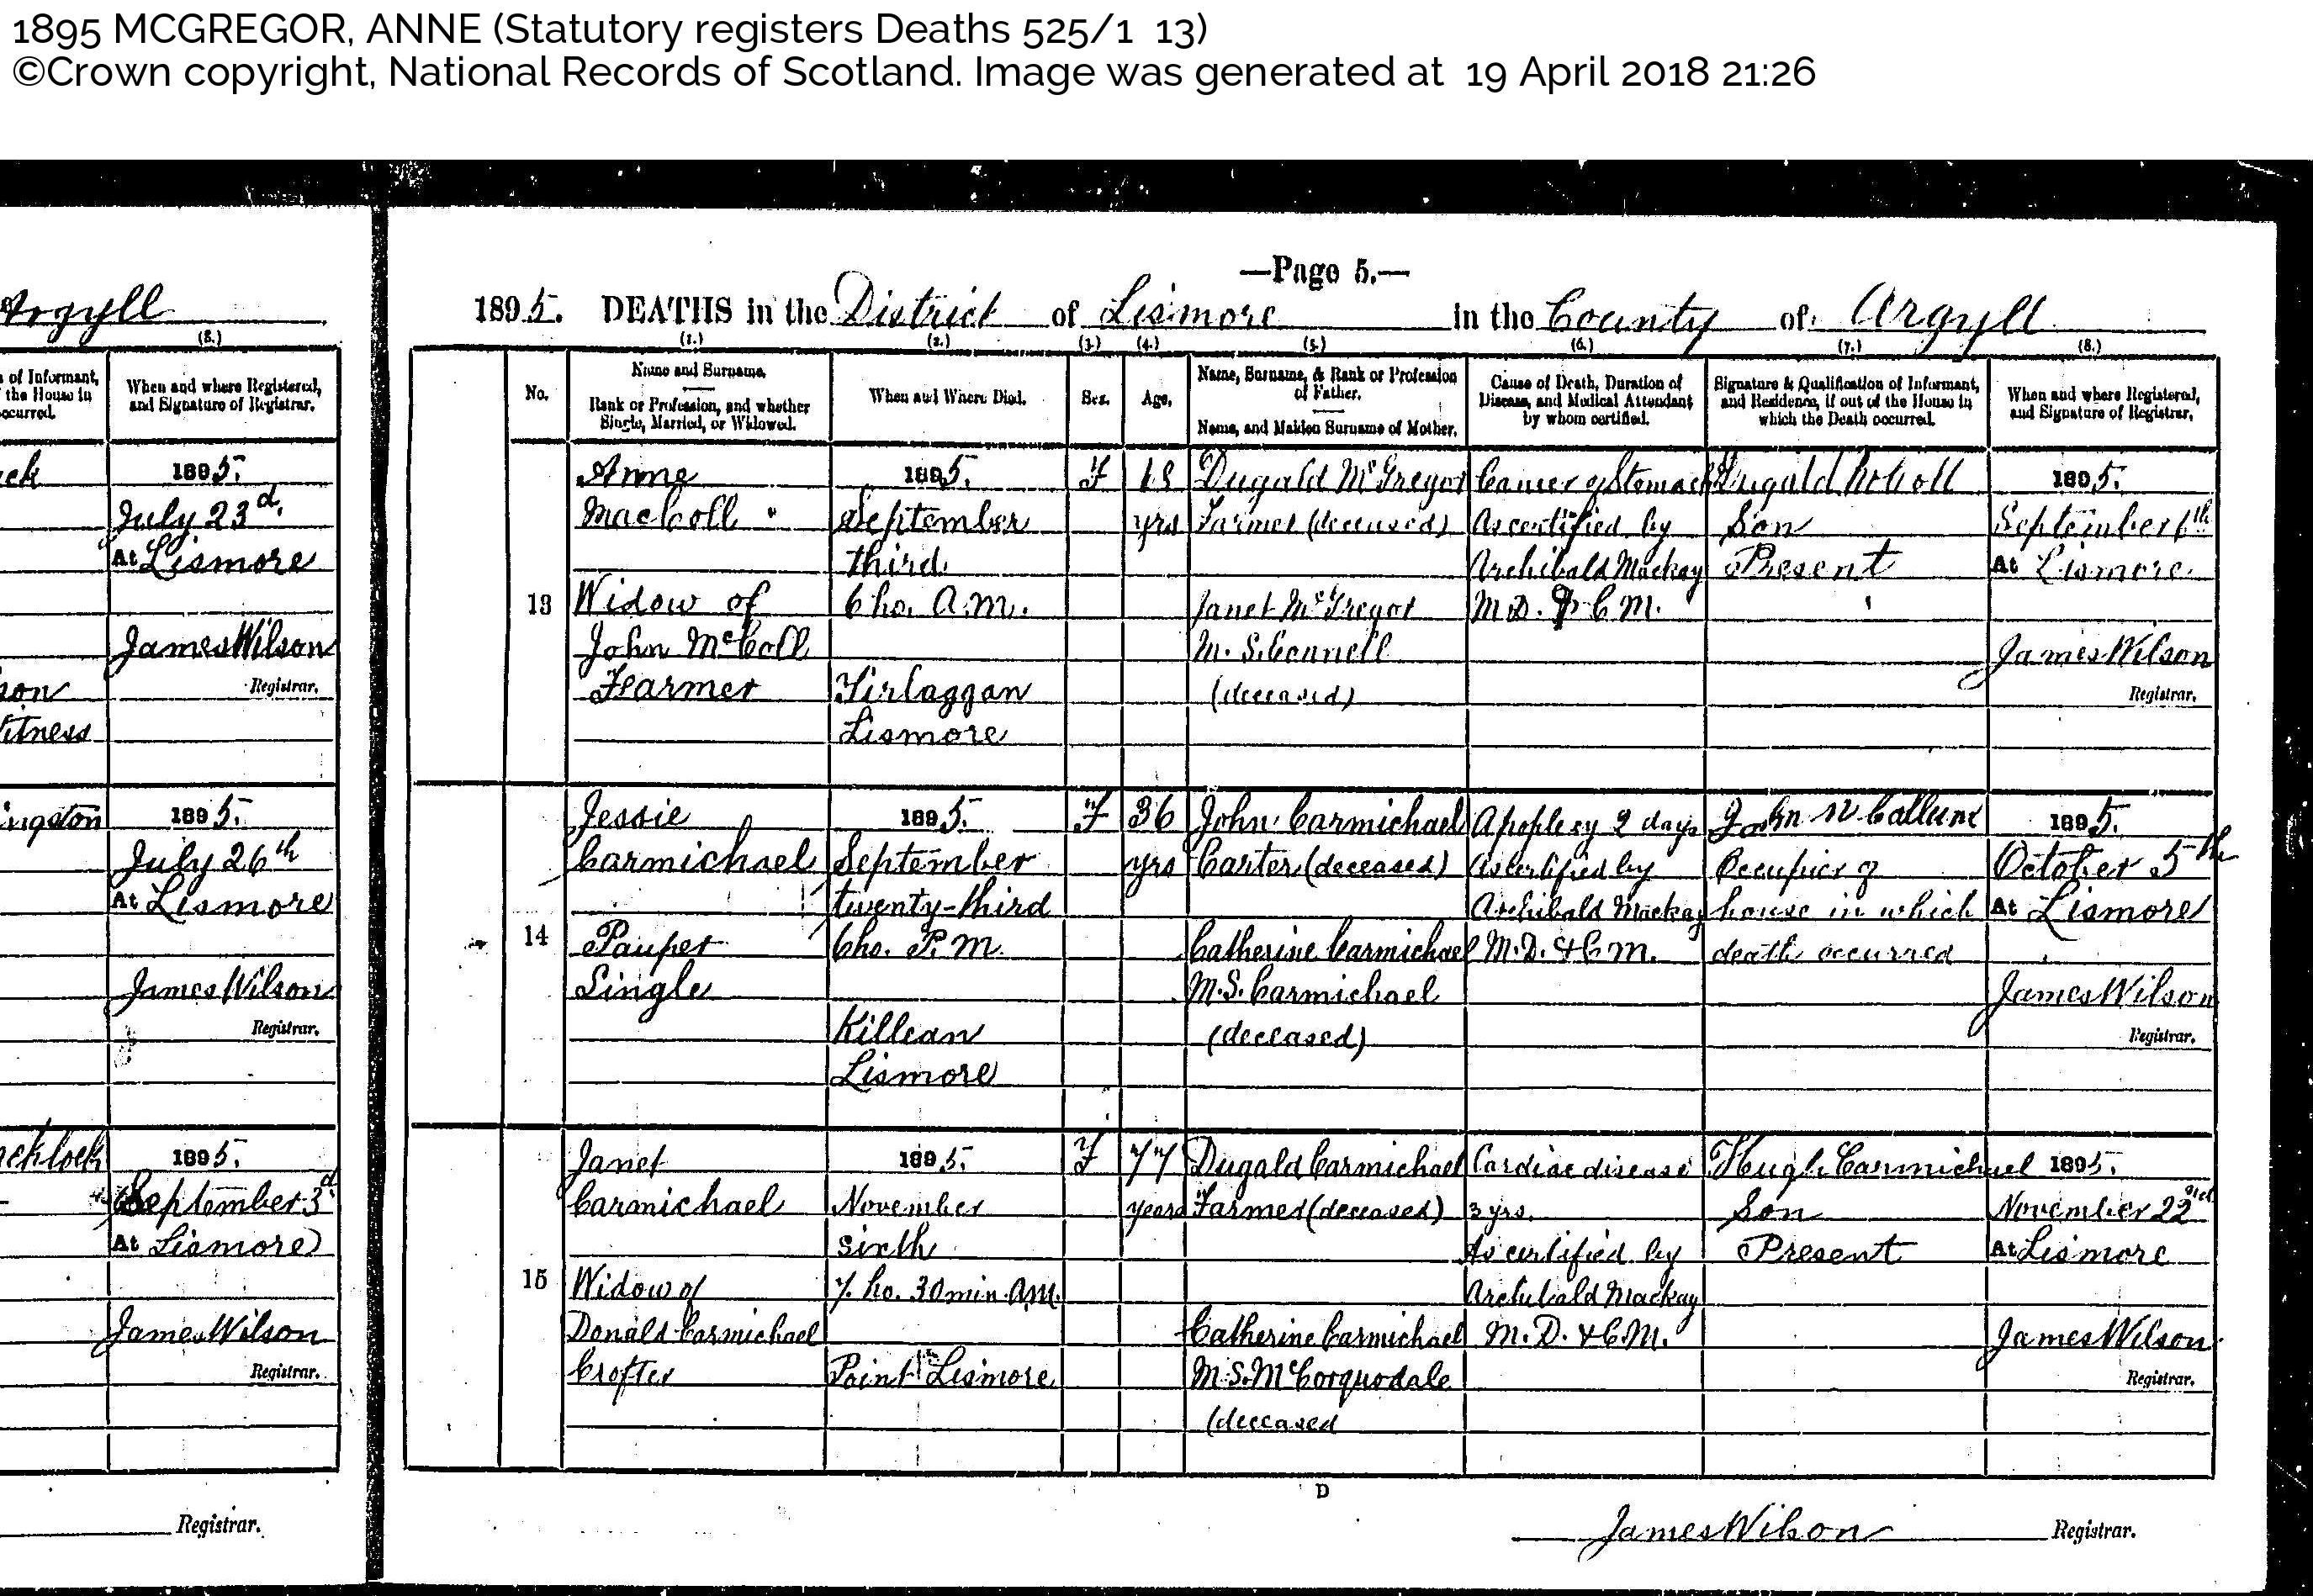 1895 MCGREGOR, ANNE (Statutory registers Deaths 525/1 13)
©Crown copyright, National Records of Scotland. Image was generated at 19 April 2018 21:26
Argyll
(8.)
of Informant,
the House in
occurred.
When and where Registered,
and Signature of Registrar.
1895.
July 23d.
At Lismore
James Wilson
Registrar.
1895.
July 26th
At Lismore
James Wilson
Registrar.
1895.
September 3d.
At Lismore
James Wilson
Registrar.
Registrar.
—Page 5.—
1895. DEATHS in the District of Lismore in the County of Argyll
(1.) (2.) (3.) (4.) (5.) (6.) (7.) (8.)
No.
Name and Surname.
Rank or Profession, and whether
Single, Married, or Widowed.
When and Where Died.
Sex.
Age.
Name, Surname, & Rank or Profession
of Father.
Name, and Maiden Surname of Mother.
Cause of Death, Duration of
Disease, and Medical Attendant
by whom certified.
Signature & Qualification of Informant,
and Residence, if out of the House in
which the Death occurred.
When and where Registered,
and Signature of Registrar.
13
Anne
MacColl
Widow of
John McColl
Farmer
1895.
September
third
6 ho. A.M.
Tirlaggan
Lismore
F
yrs
Dugald McGregor
Farmer (deceased)
Janet McGregor
M.S. Connell
(deceased)
Cancer of Stomach
As certified by
Archibald Mackay
M.D. & C.M.
Dugald McColl
Son
Present
1895.
September 6th
At Lismore
James Wilson
Registrar.
14
Jessie
Carmichael
Pauper
Single
1895.
September
twenty-third
6 ho. P.M.
Killean
Lismore
F
36
yrs
John Carmichael
Carter (deceased)
Catherine Carmichael
M.S. Carmichael
(deceased)
Apoplexy 2 days
As certified by
Archibald Mackay
M.D. & C.M.
John McCallum
Occupier of
house in which
death occurred
1895.
October 5th
At Lismore
James Wilson
Registrar.
15
Janet
Carmichael
Widow of
Donald Carmichael
Crofter
1895.
November
sixth
7 ho. 30 min. A.M.
Point Lismore
F
77
years
Dugald Carmichael
Farmer (deceased)
Catherine Carmichael
M.S. McCorquodale
(deceased
Cardiac disease
3 yrs.
As certified by
Archibald Mackay
M.D. & C.M.
Hugh Carmichael
Son
Present
1895.
November 22nd
At Lismore
James Wilson
Registrar.
D
James Wilson Registrar.